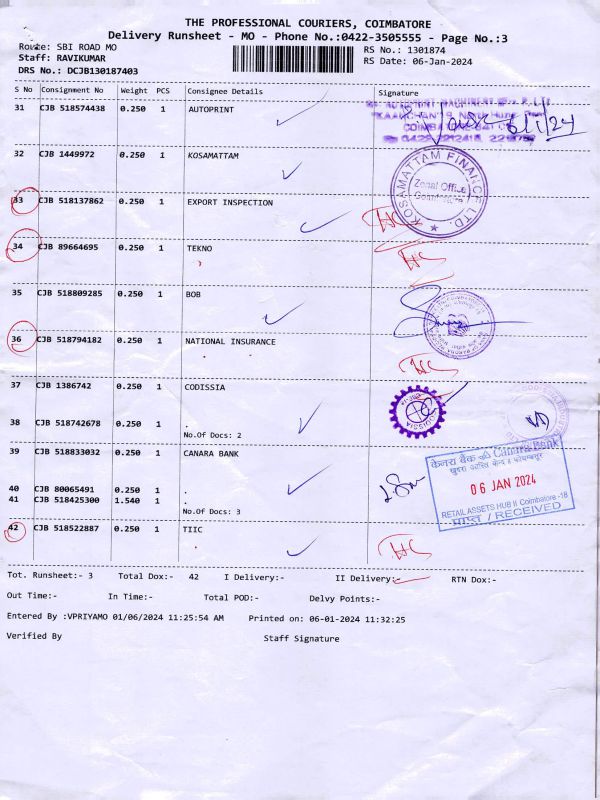 THE PROFESSIONAL COURIERS, COIMBATORE
Delivery Runsheet - MO - Phone No.:0422-3505555 - Page No.:3
Route: SBI ROAD MO
RS No.: 1301874
Staff: RAVIKUMAR
RS Date: 06-Jan-2024
DRS No.: DCJB130187403
S No Consignment No Weight PCS Consignee Details Signature
31 CJB 518574438 0.250 1 AUTOPRINT
6/1/24
32 CJB 1449972 0.250 1 KOSAMATTAM
KOSAMATTAM FINANCE LTD.
Zonal Office
Coimbatore
33 CJB 518137862 0.250 1 EXPORT INSPECTION
34 CJB 89664695 0.250 1 TEKNO
35 CJB 518809285 0.250 1 BOB
36 CJB 518794182 0.250 1 NATIONAL INSURANCE
37 CJB 1386742 0.250 1 CODISSIA
CODISSIA
38 CJB 518742678 0.250 1 .
No.Of Docs: 2
39 CJB 518833032 0.250 1 CANARA BANK
केनरा बैंक Canara Bank
06 JAN 2024
RETAIL ASSETS HUB II Coimbatore -18
प्राप्त / RECEIVED
40 CJB 80065491 0.250 1 .
41 CJB 518425300 1.540 1
No.Of Docs: 3
42 CJB 518522887 0.250 1 TIIC
Tot. Runsheet:- 3 Total Dox:- 42 I Delivery:- II Delivery:- RTN Dox:-
Out Time:- In Time:- Total POD:- Delvy Points:-
Entered By :VPRIYAMO 01/06/2024 11:25:54 AM Printed on: 06-01-2024 11:32:25
Verified By Staff Signature